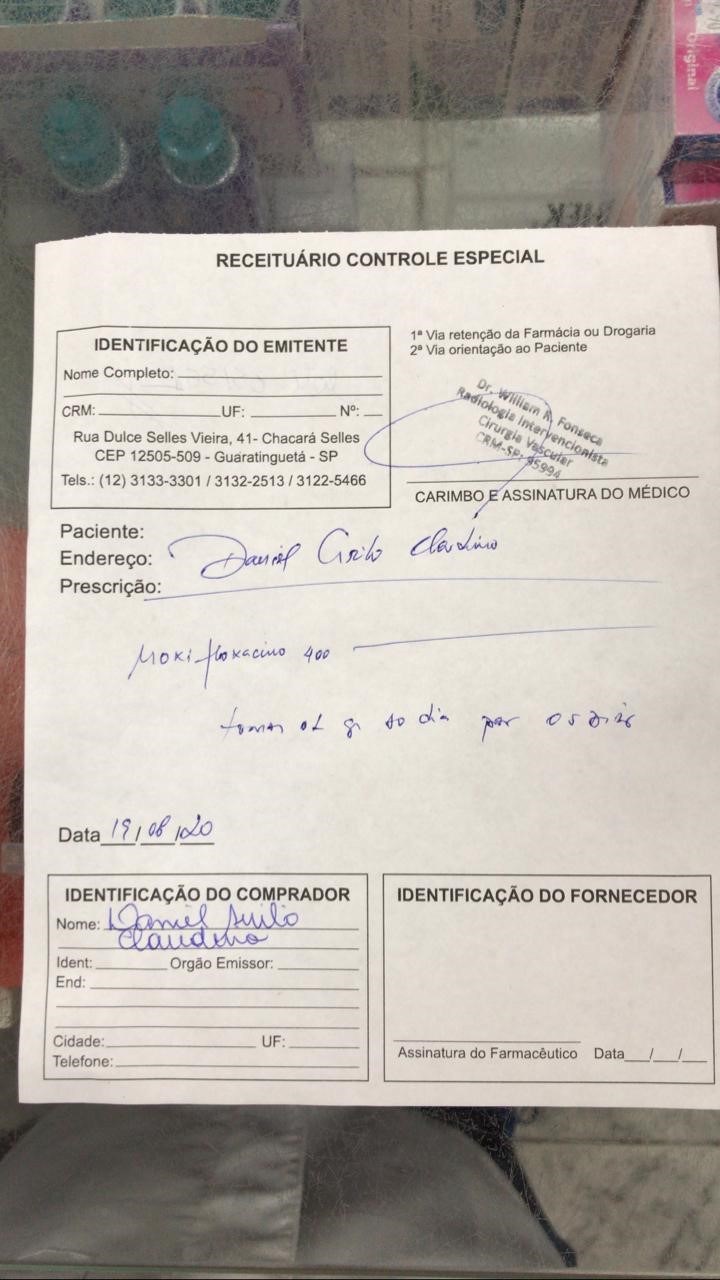 Original
RECEITUÁRIO CONTROLE ESPECIAL
IDENTIFICAÇÃO DO EMITENTE
Nome Completo:
CRM: UF: Nº:
Rua Dulce Selles Vieira, 41- Chacará Selles
CEP 12505-509 - Guaratinguetá - SP
Tels.: (12) 3133-3301 / 3132-2513 / 3122-5466
1ª Via retenção da Farmácia ou Drogaria
2ª Via orientação ao Paciente
Dr. William R. Fonseca
Radiologia Intervencionista
Cirurgia Vascular
CRM-SP: 95994
CARIMBO E ASSINATURA DO MÉDICO
Paciente:
Endereço: Daniel Claudino
Prescrição:
Moxifloxacino 400
tomar 01 ao dia por 05 dias
Data 19/08/20
IDENTIFICAÇÃO DO COMPRADOR
Nome: Daniel
Claudino
Ident: Orgão Emissor:
End:
Cidade: UF:
Telefone:
IDENTIFICAÇÃO DO FORNECEDOR
Assinatura do Farmacêutico Data__/__/__